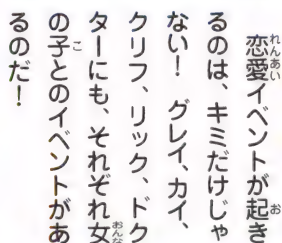 恋愛イベントが起き
るのは、キミだけじゃ
ない！　グレイ、カイ、
クリフ、リック、ドク
ターにも、それぞれ女
の子とのイベントがあ
るのだ！